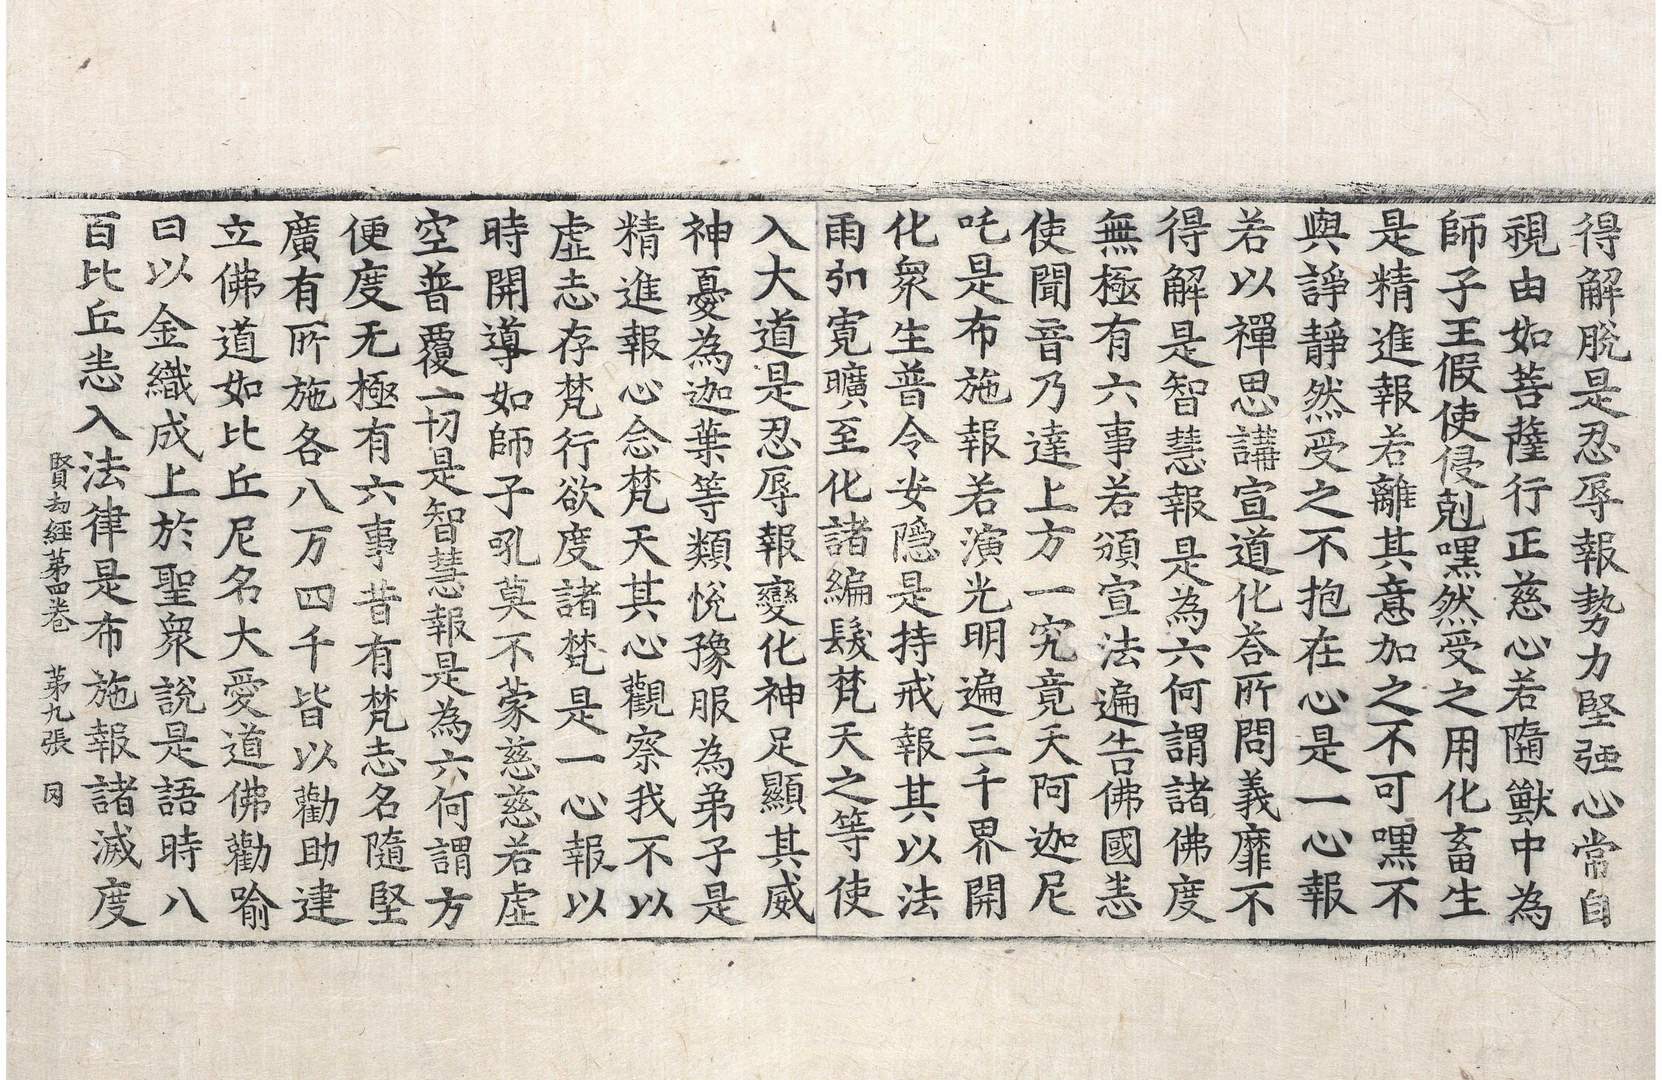 得解脫是忍辱報勢力堅强心常自
視由如菩薩行正慈心若隨獸中為
師子王假使侵剋嘿然受之用化畜生
是精進報若離其意加之不可嘿不
與諍靜然受之不抱在心是一心報
若以禪思講宣道化荅所問義靡不
得解是智慧報是為六何謂諸佛度
無極有六事若頒宣法遍告佛國恚
使聞音乃達上方一究竟天阿迦尼
吒是布施報若演光明遍三千界開
化衆生普令安隱是持戒報其以法
雨引寬曠至化諸編髮梵天之等使
入大道是忍辱報變化神足顯其威
神憂為迦葉等類悅豫服為弟子是
精進報心念梵天其心觀察我不以
虛恚存梵行欲度諸梵是一心報以
時開導如師子吼莫不蒙慈慈若虛
空普覆一切是智慧報是為六何謂方
便度无極有六事昔有梵志名隨堅
廣有所施各八万四千皆以勸助建
立佛道如比丘尼名大愛道佛勸喻
曰以金織成上於聖衆說是語時八
百比丘恚入法律是布施報諸滅度
賢劫經第四卷　第九張　囙